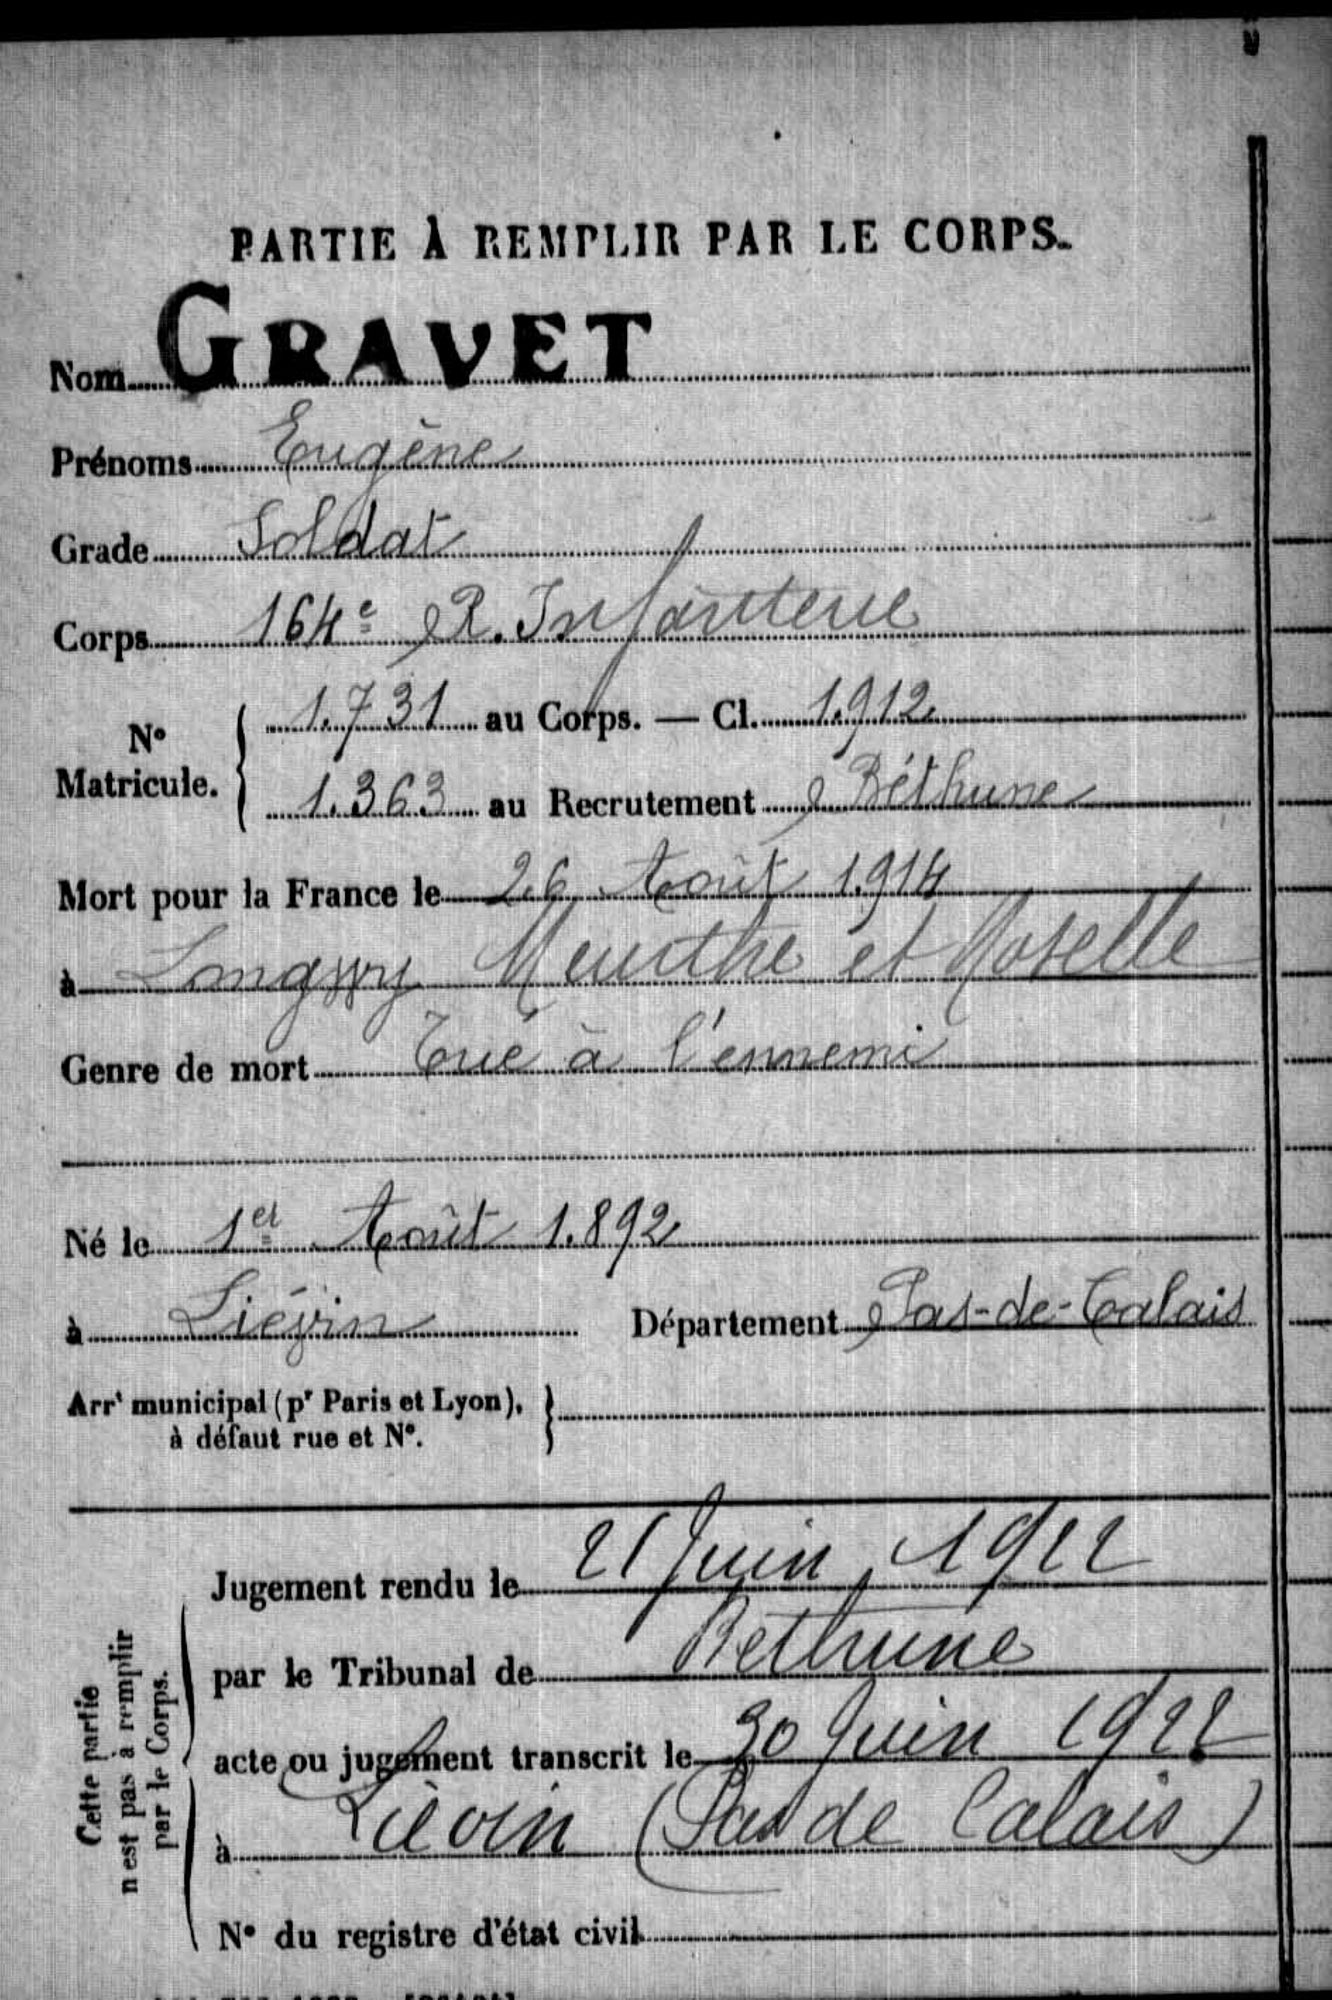 PARTIE À REMPLIR PAR LE CORPS.
Nom GRAVET
Prénoms Eugène
Grade Soldat
Corps 164e R. Infanterie
N° Matricule. 1.731 au Corps. — Cl. 1.912
1.363 au Recrutement Béthune
Mort pour la France le 26 Août 1.914
à Longwy Meurthe et Moselle
Genre de mort Tué à l'ennemi
Né le 1er Août 1.892
à Liévin Département Pas-de-Calais
Arrt municipal (pr Paris et Lyon),
à défaut rue et N°.
Jugement rendu le 21 Juin 1922
par le Tribunal de Béthune
acte ou jugement transcrit le 30 Juin 1922
à Liévin (Pas de Calais)
N° du registre d'état civil
Cette partie
n'est pas à remplir
par le Corps.